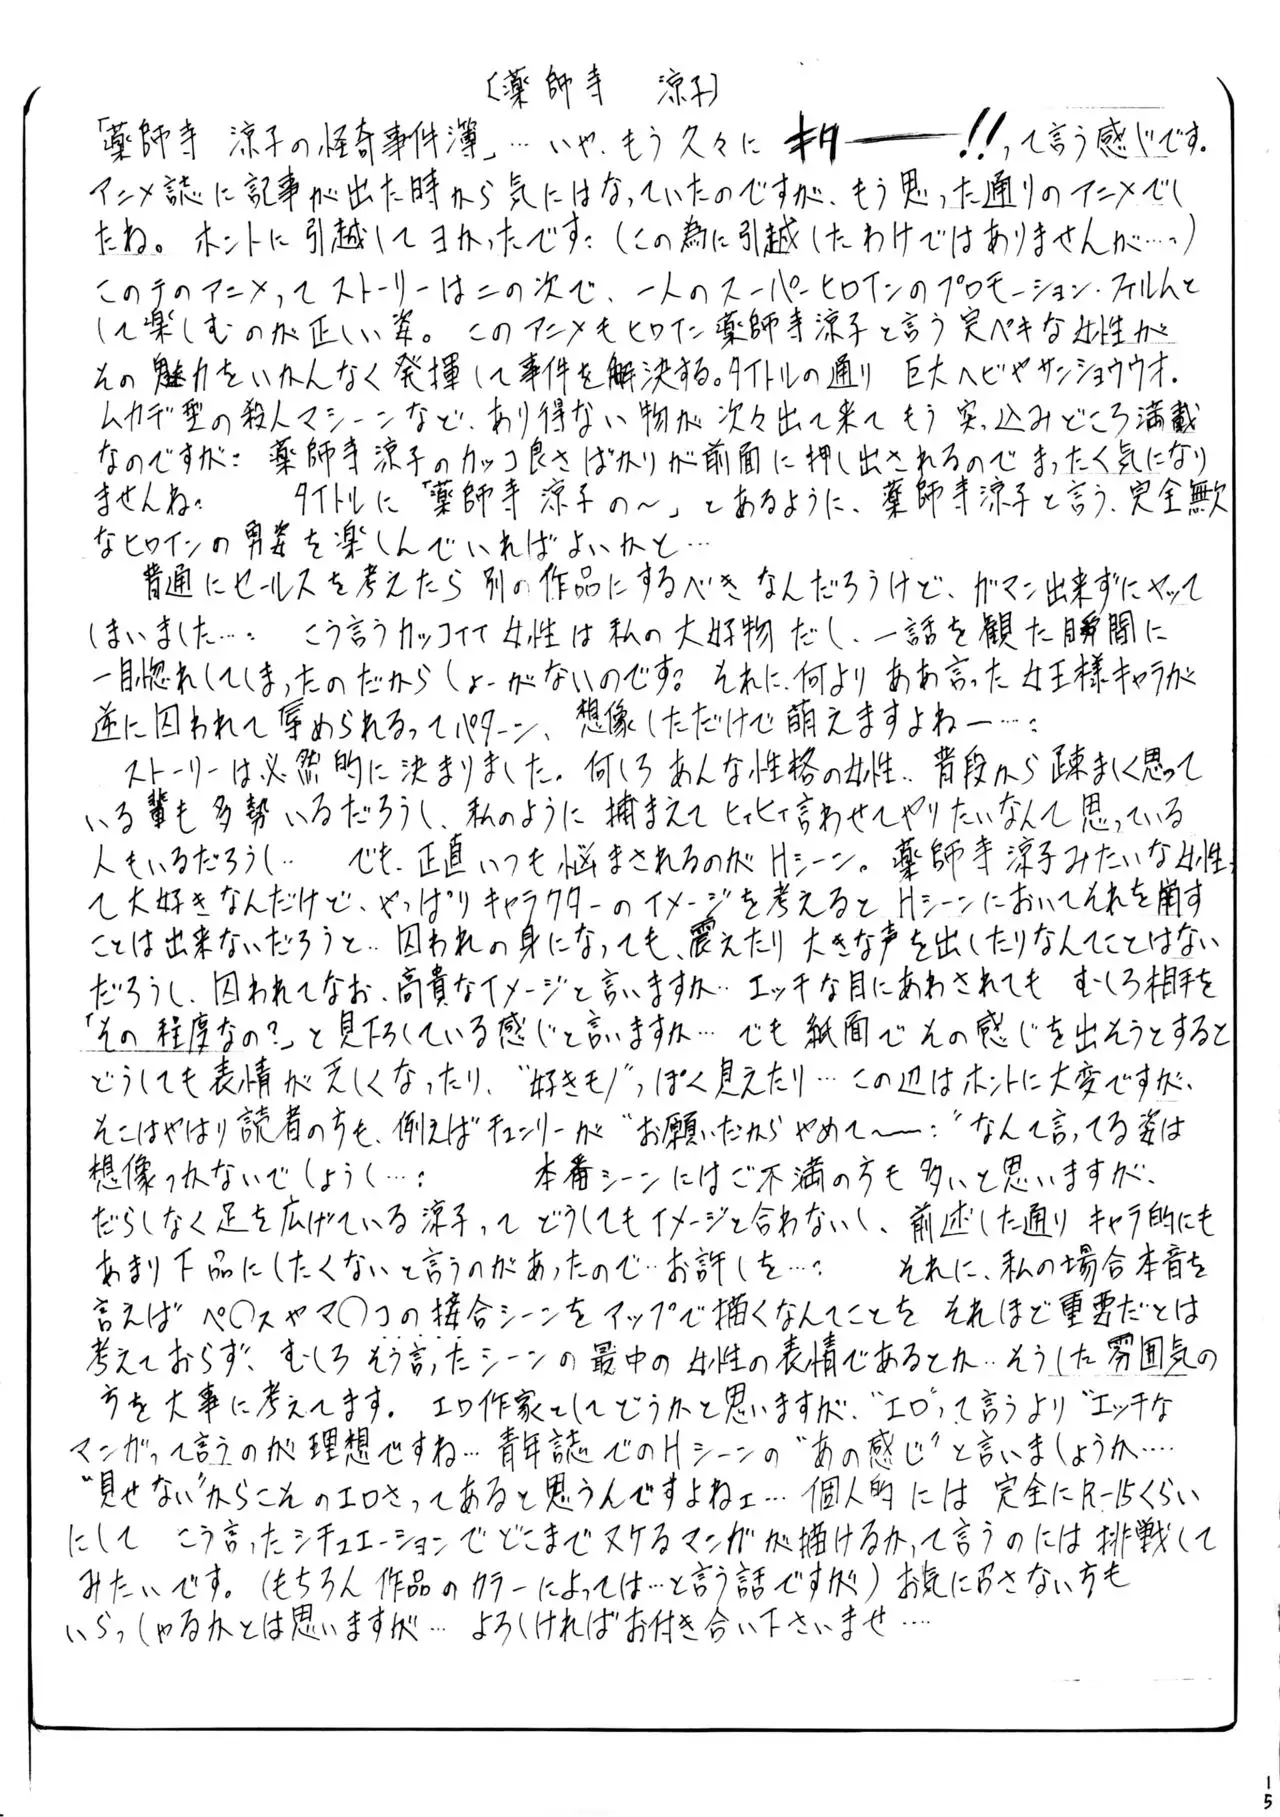 〔薬師寺 涼子〕
「薬師寺 涼子の怪奇事件簿」…いや、もう久々に キターーー!!って言う感じです。
アニメ誌に記事が出た時から気にはなっていたのですが、もう思った通りのアニメでし
たね。ホントに引越してヨかったです:(この為に引越したわけではありませんが…:)
このテのアニメってストーリーは二の次で、一人のスーパーヒロインのプロモーション・フィルムと
して楽しむのが正しい姿。このアニメもヒロイン薬師寺涼子と言う完ペキな女性が
その魅力をいかんなく発揮して事件を解決する。タイトルの通り 巨大ヘビやサンショウウオ、
ムカデ型の殺人マシーンなど、あり得ない物が次々出て来てもう突っ込みどころ満載
なのですが: 薬師寺涼子のカッコ良さばかりが前面に押し出されるのでまったく気になり
ませんね: タイトルに「薬師寺涼子の〜」とあるように、薬師寺涼子と言う、完全無欠
なヒロインの勇姿を楽しんでいればよいかと…
普通にセールスを考えたら別の作品にするべきなんだろうけど、ガマン出来ずにヤッて
しまいました…: こう言うカッコイイ女性は私の大好物だし、一話を観た瞬間に
一目惚れしてしまったのだからしょーがないのです: それに、何よりああ言った女王様キャラが
逆に囚われて辱められるってパターン、想像しただけで萌えますよねー…:
ストーリーは必然的に決まりました。何しろあんな性格の女性‥普段から疎ましく思って
いる輩も多勢いるだろうし、私のように捕まえてヒィヒィ言わせてやりたいなんて思っている
人もいるだろうし‥ でも、正直いつも悩まされるのがHシーン。薬師寺涼子みたいな女性っ
て大好きなんだけど、やっぱりキャラクターのイメージを考えるとHシーンにおいてそれを崩す
ことは出来ないだろうと‥囚われの身になっても、震えたり大きな声を出したりなんてことはない
だろうし、囚われてなお、高貴なイメージと言いますか‥エッチな目にあわされても むしろ相手を
「その程度なの?」と見下ろしている感じと言いますか…でも紙面でその感じを出そうとすると
どうしても表情が乏しくなったり、“好きモノ”っぽく見えたり…この辺はホントに大変ですが、
そこはやはり読者の方も、例えばチュンリーが“お願いだからやめて〜:”なんて言ってる姿は
想像つかないでしょうし…: 本番シーンにはご不満の方も多いと思いますが、
だらしなく足を広げている涼子ってどうしてもイメージと合わないし、前述した通りキャラ的にも
あまり下品にしたくないと言うのがあったので‥お許しを…: それに、私の場合本音を
言えばペ〇スやマ〇コの接合シーンをアップで描くなんてことを それほど重要だとは
考えておらず、むしろそう言ったシーンの最中の女性の表情であるとか‥そうした雰囲気の
方を大事に考えてます。エロ作家としてどうかと思いますが、“エロ”って言うより“エッチな
マンガって言うのが理想ですね…青年誌でのHシーンの“あの感じ”と言いましょうか…
“見せない”からこそのエロさってあると思うんですよねェ…個人的には完全にR-15くらい
にして こう言ったシチュエーションでどこまでヌケるマンガが描けるかって言うのには挑戦して
みたいです。(もちろん作品のカラーによっては…と言う話ですが)お気に召さない方も
いらっしゃるかとは思いますが…よろしければお付き合い下さいませ…
15